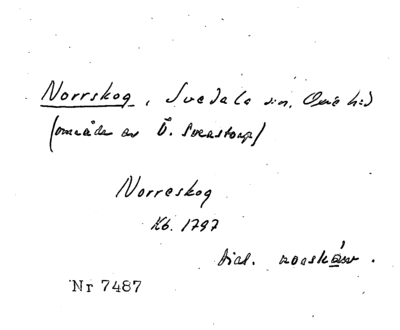 Norrskog, Svedala sn, Oxie hd
(område av Ö. Svenstorp)
Norreskog
Kb. 1797
Dial.
Nr 7487